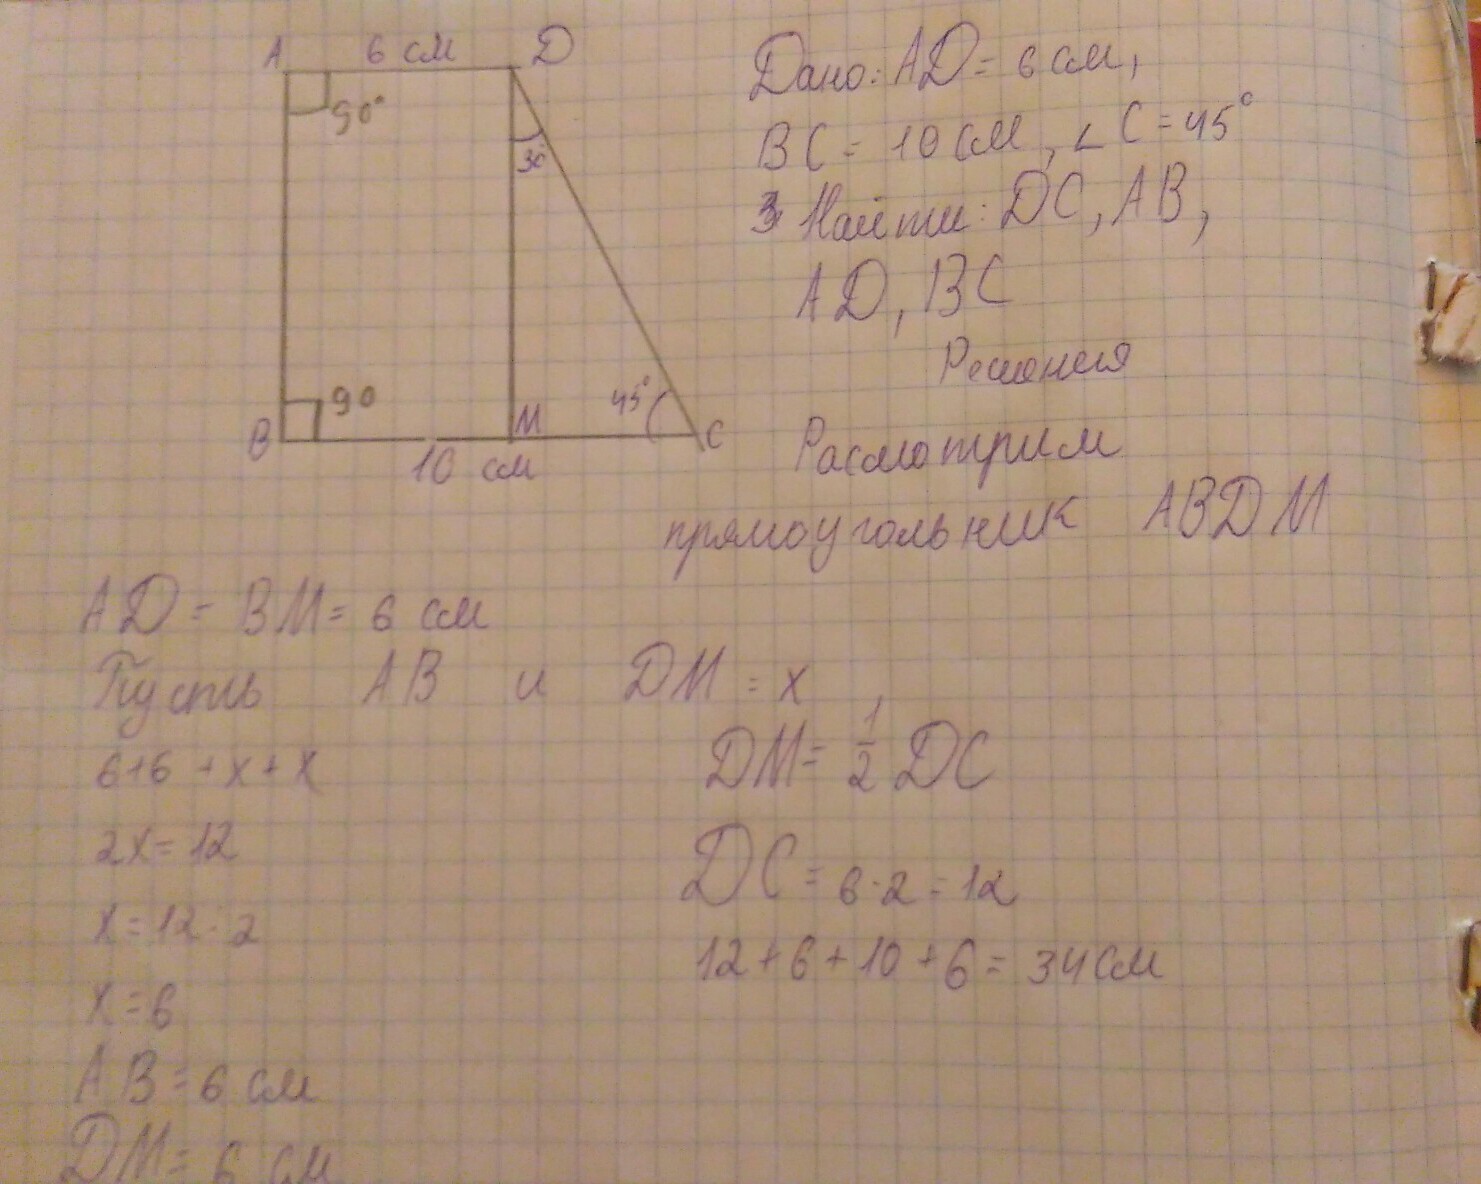 A 6 см D
90°
30°
90
45°
B M C
10 см
Дано: AD = 6 см,
BC = 10 см, ∠C = 45°
Найти: DC, AB,
AD, BC
Решения
Расмотрим
прямоугольник ABDM
AD = BM = 6 см
Пусть AB и DM = x
6+6 + x + x
2x = 12
x = 12 : 2
x = 6
AB = 6 см
DM = 6 см
DM = 1/2 DC
DC = 6 · 2 = 12
12 + 6 + 10 + 6 = 34 см